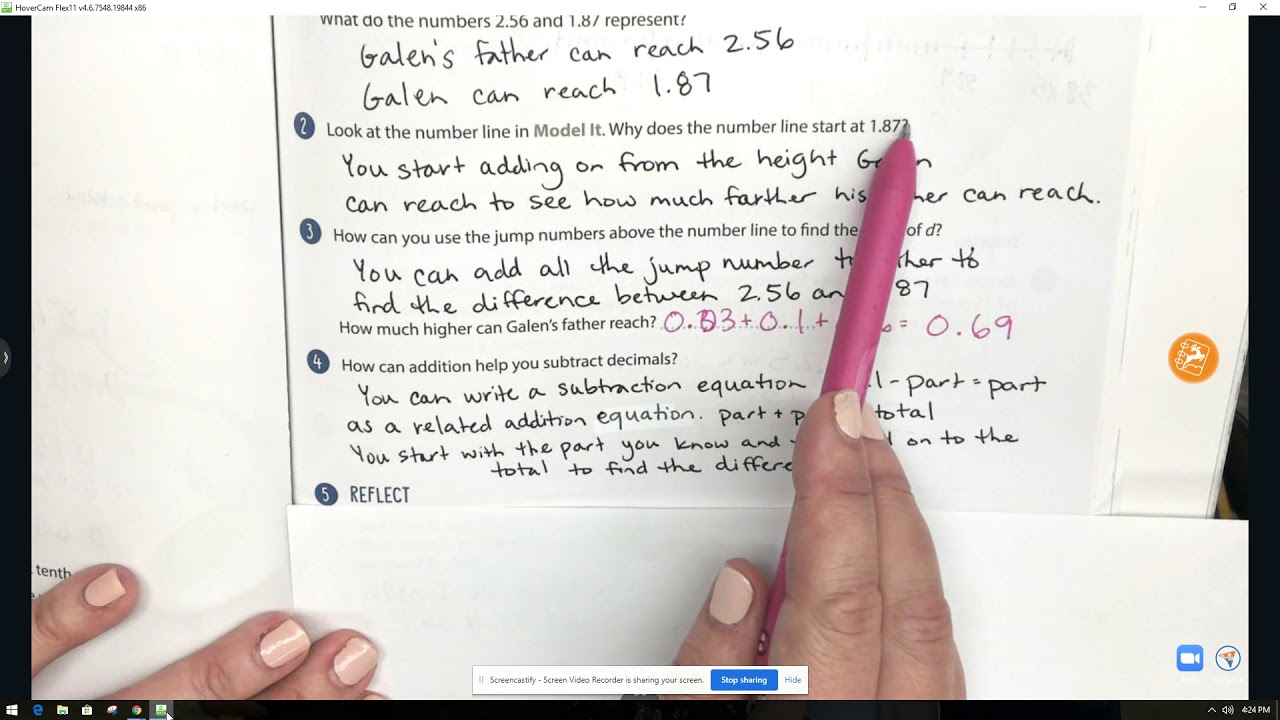 HoverCam Flex11 v4.6.7548.19844 x86
What do the numbers 2.56 and 1.87 represent?
Galen's father can reach 2.56
Galen can reach 1.87
2 Look at the number line in Model It. Why does the number line start at 1.87?
You start adding on from the height
can reach to see how much farther his can reach.
3 How can you use the jump numbers above the number line to find the of d?
You can add all the jump number to
find the difference between 2.56 87
How much higher can Galen's father reach? + 0.1 + = 0.69
4 How can addition help you subtract decimals?
You can write a subtraction equation - part = part
as a related addition equation. part + total
You start with the part you know and on to the
total to find the
5 REFLECT
tenth
Screencastify - Screen Video Recorder is sharing your screen. Stop sharing Hide
4:24 PM